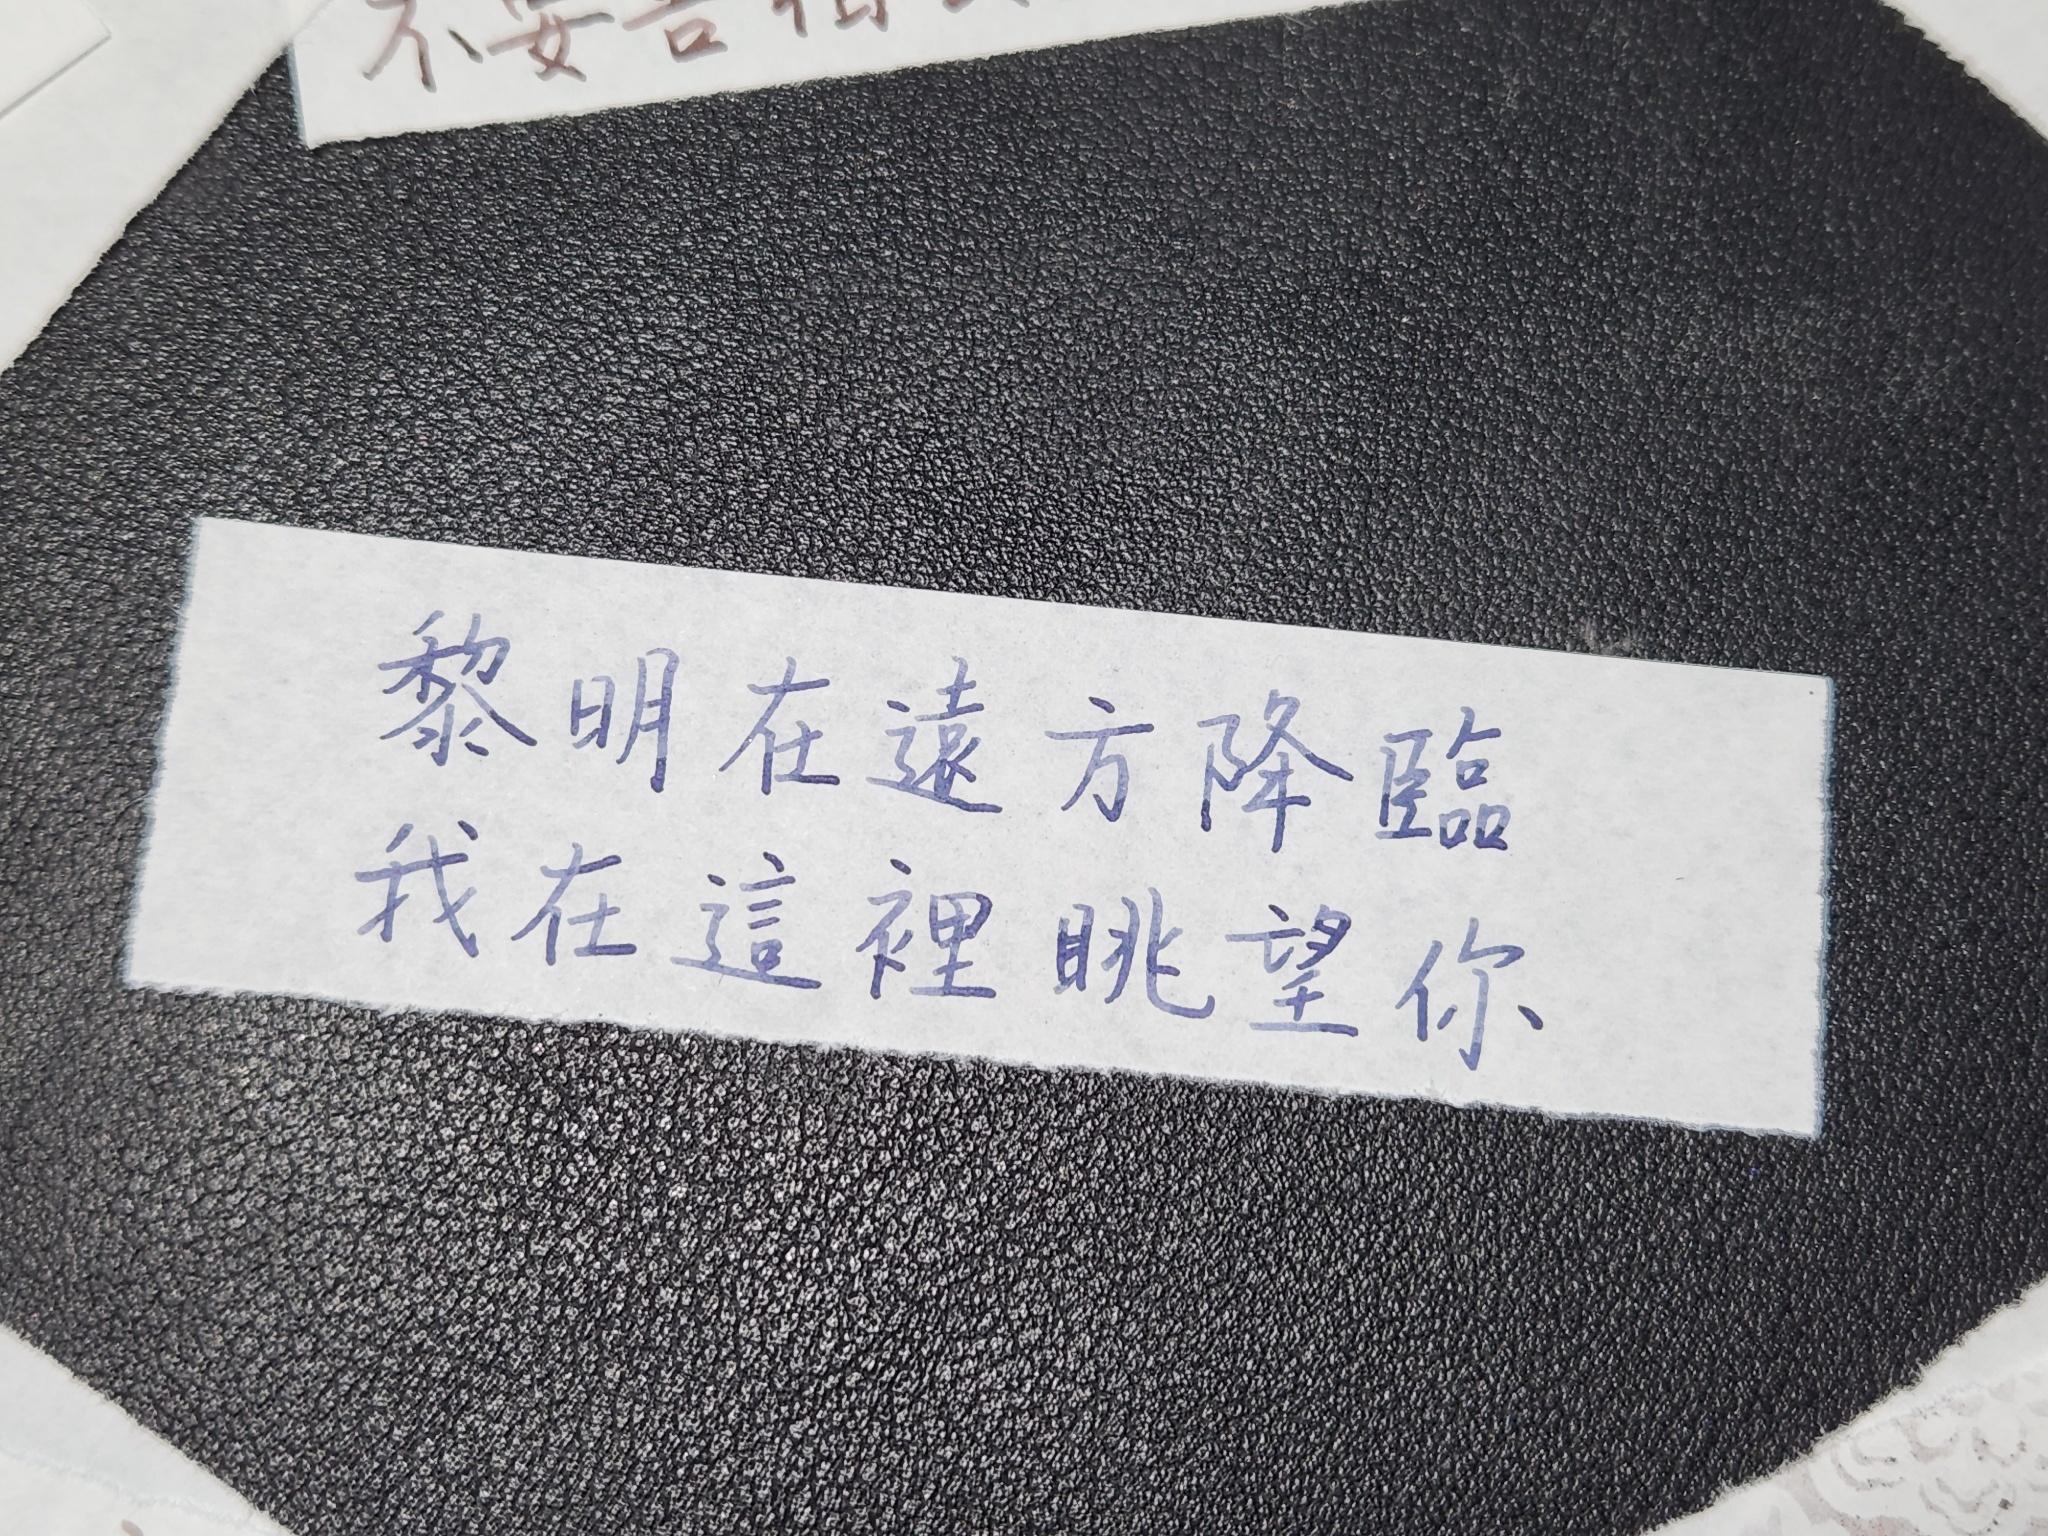 不安言相
黎明在遠方降臨
我在這裡眺望你